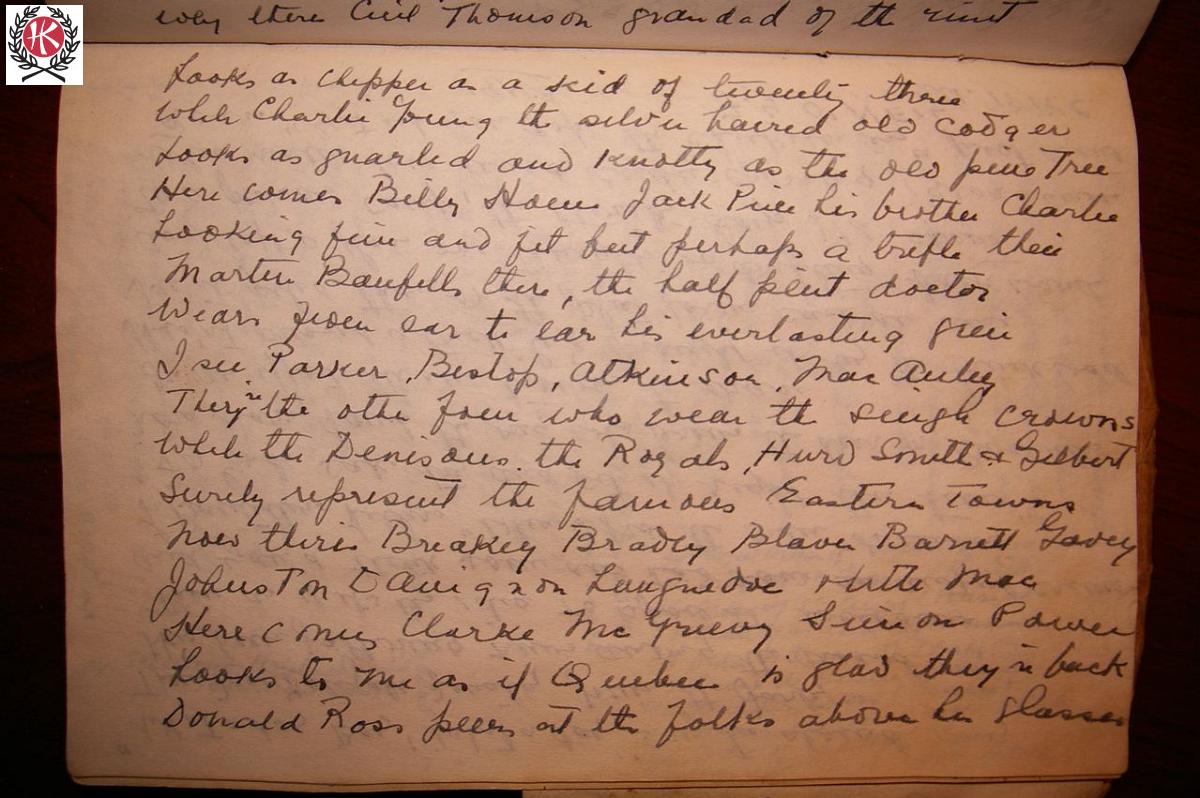 HK
why there Cecil Thomson grandad of the
Looks as chipper as a kid of twenty three
While Charlie Young the silver haired old codger
Looks as gnarled and Knotty as the old pine Tree
Here comes Billy Jack Pine his brother Charlie
Looking fine and fit but perhaps a trifle thin
Martin Banfells there, the half pint doctor
Wears from ear to ear his everlasting grin
I see Parker, Bishop, Atkinson, MacAuley
They're the other four who wear the single crowns
While the Denisons, the Royals, Hurd Smith & Gilbert
Surely represent the famous Eastern Towns
Now theres Breakey Bradley Barrett Gavey
Johnston Davignon Languedoc little Mac
Here comes Clarke McGreevy Simon Power
Looks to me as if Quebec is glad they're back
Donald Ross peers at the folks above his glasses